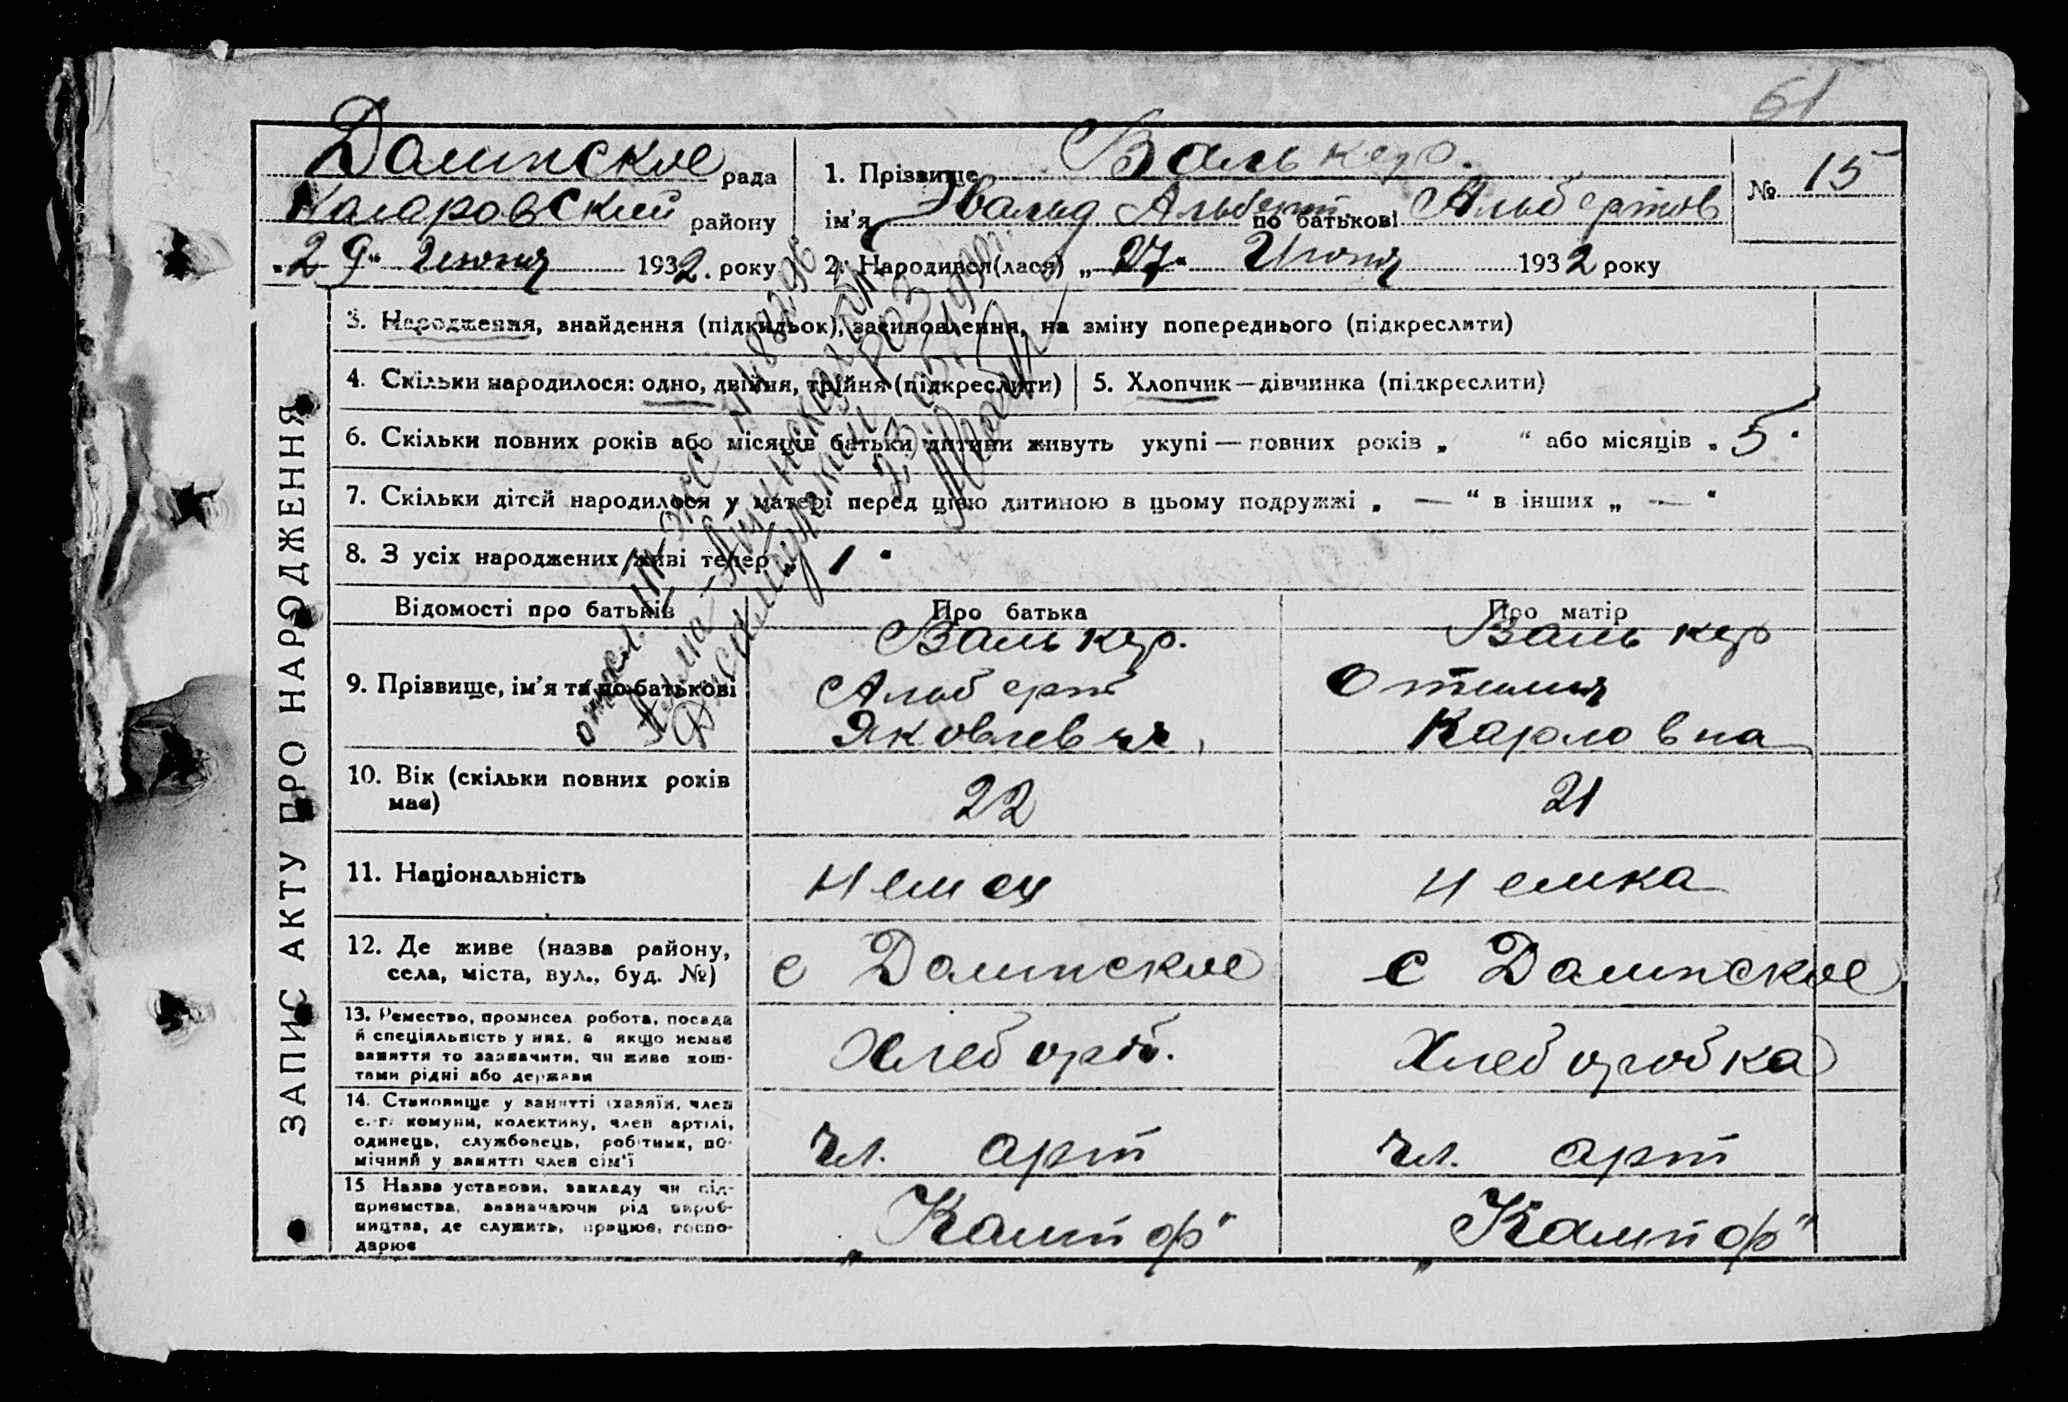 61
Долинское рада
Каларовский району
„29“ Июня 1932. року
1. Прізвище Валькер.
ім’я Эвальд Альберт по батькові Альбертов
2. Народився(лася) „27“ Июня 1932 року
№ 15
ЗАПИС АКТУ ПРО НАРОДЖЕННЯ
3. Народження, знайдення (підкидьок), засиновлення, на зміну попереднього (підкреслити)
4. Скільки народилося: одно, двійня, трійня (підкреслити)
5. Хлопчик—дівчинка (підкреслити)
6. Скільки повних років або місяців батьки дитини живуть укупі—повних років „ “ або місяців „5“
7. Скільки дітей народилося у матері перед цією дитиною в цьому подружжі „ — “ в інших „ — “
8. З усіх народжених живі тепер „1“
Відомості про батьків
Про батька
Про матір
9. Прізвище, ім’я та по батькові
Валькер.
Альберт
Яковлевич
Валькер
Отилия
Карловна
10. Вік (скільки повних років має)
22
21
11. Національність
немец
немка
12. Де живе (назва району, села, міста, вул., буд. №)
с Долинское
с Долинское
13. Ремество, промисел, робота, посада й спеціяльність у них, а якщо немає заняття то зазначити, чи живе коштами рідні або держави
Хлебороб.
Хлеборобка
14. Становище у занятті (хазяїн, член с.-г. комуни, колективу, член артілі, одинець, службовець, робітник, помічний у занятті член сім’ї
чл. арт
чл. арт
15 Назва установи, закладу чи підприємства, визначаючи рід виробництва, де служить, працює, господарює
„Кампф“
„Кампф“